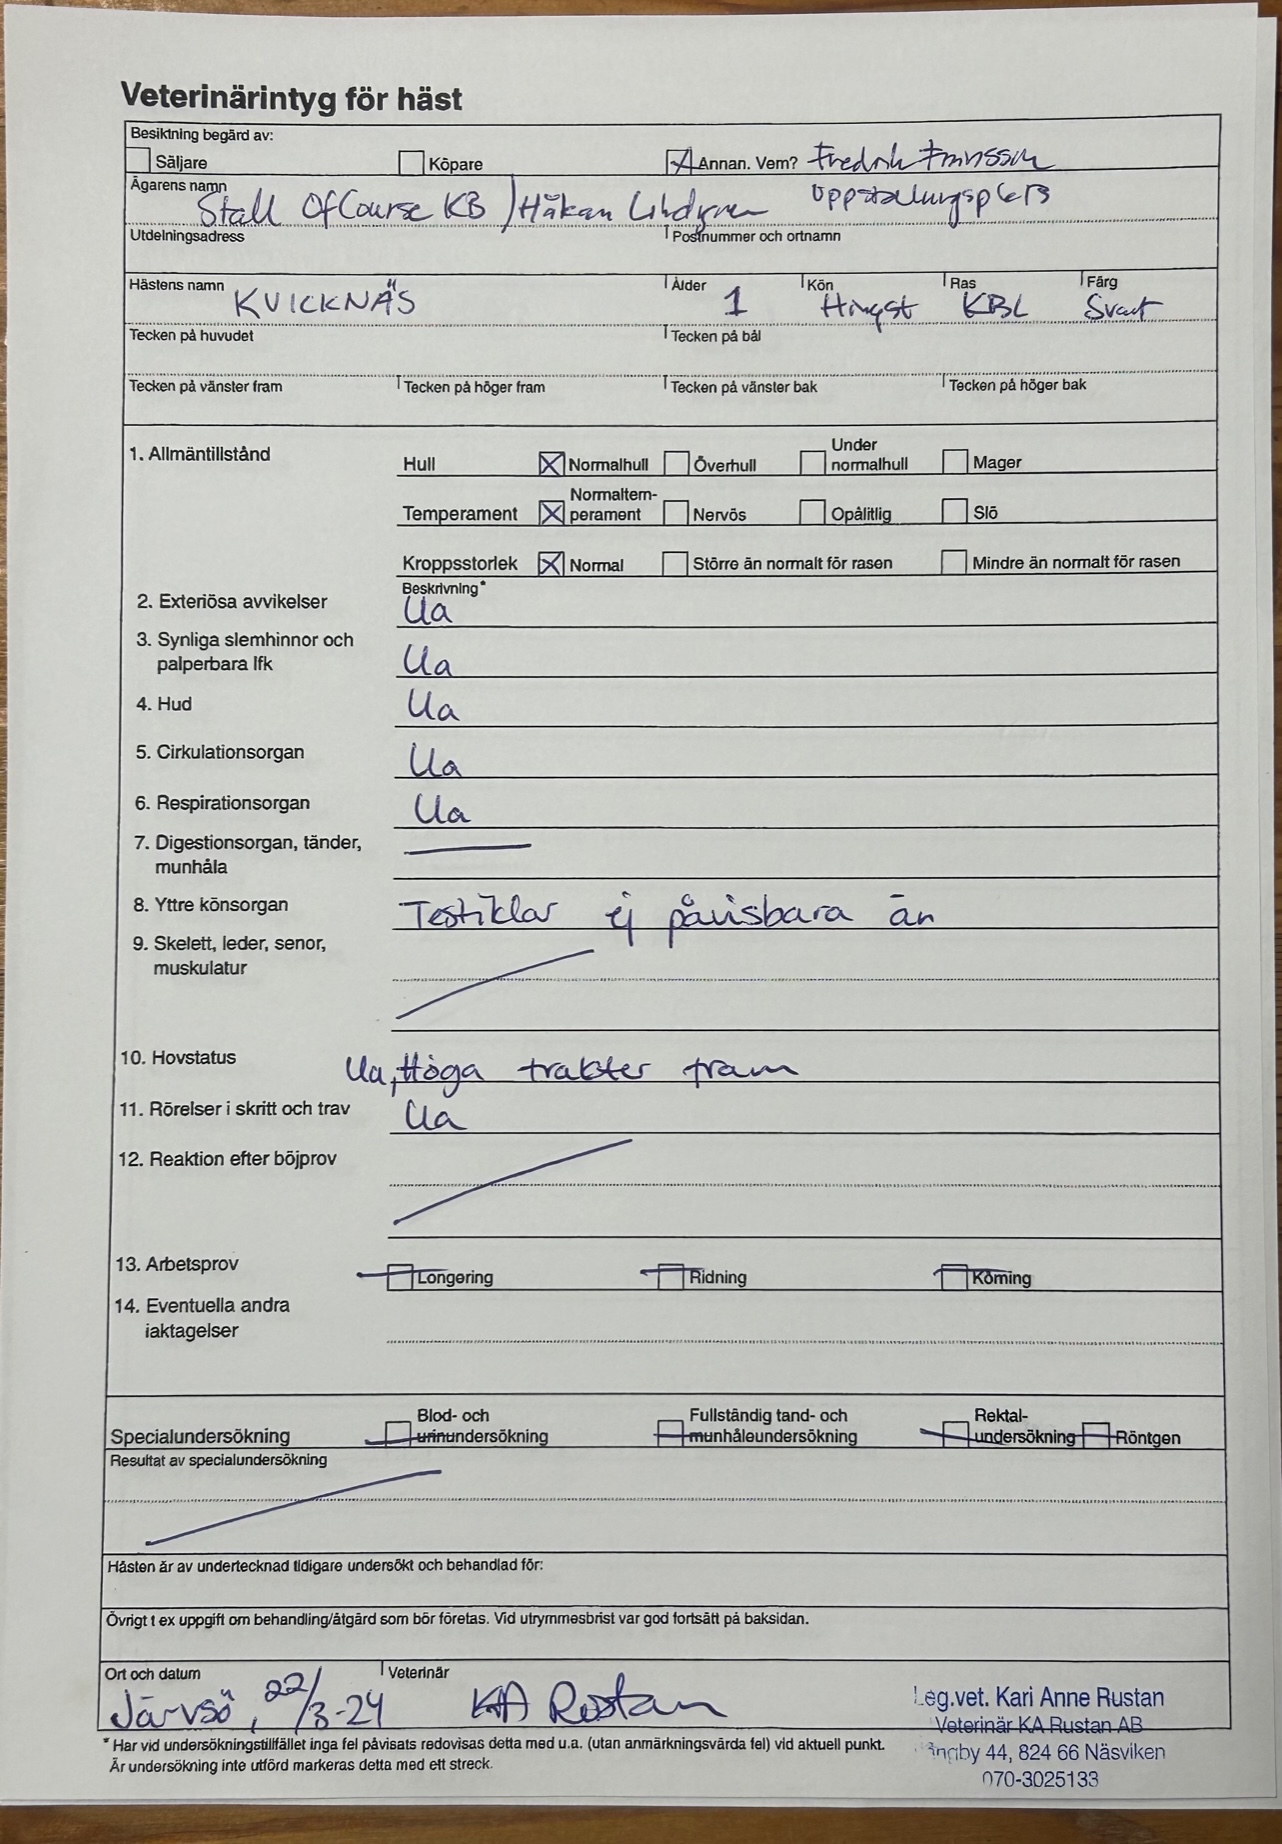 Veterinärintyg för häst
Besiktning begärd av:
Säljare Köpare Annan. Vem? Fredrik
Ägarens namn
Stall OfCourse KB / Håkan Lindgren uppstallningsplats
Utdelningsadress Postnummer och ortnamn
Hästens namn Ålder Kön Ras Färg
KVICKNÄS 1 Hingst KBL Svart
Tecken på huvudet Tecken på bål
Tecken på vänster fram Tecken på höger fram Tecken på vänster bak Tecken på höger bak
1. Allmäntillstånd
Hull Normalhull Överhull Under normalhull Mager
Temperament Normaltem-
perament Nervös Opålitlig Slö
Kroppsstorlek Normal Större än normalt för rasen Mindre än normalt för rasen
Beskrivning*
2. Exteriösa avvikelser Ua
3. Synliga slemhinnor och
palperbara lfk Ua
4. Hud Ua
5. Cirkulationsorgan Ua
6. Respirationsorgan Ua
7. Digestionsorgan, tänder,
munhåla
8. Yttre könsorgan Testiklar ej påvisbara än
9. Skelett, leder, senor,
muskulatur
10. Hovstatus Ua, Höga trakter fram
11. Rörelser i skritt och trav Ua
12. Reaktion efter böjprov
13. Arbetsprov Longering Ridning Körning
14. Eventuella andra
iaktagelser
Specialundersökning Blod- och
urinundersökning Fullständig tand- och
munhåleundersökning Rektal-
undersökning Röntgen
Resultat av specialundersökning
Hästen är av undertecknad tidigare undersökt och behandlad för:
Övrigt t ex uppgift om behandling/åtgärd som bör företas. Vid utrymmesbrist var god fortsätt på baksidan.
Ort och datum Veterinär
Järvsö, 22/3-24 KA Rustan
Leg.vet. Kari Anne Rustan
Veterinär KA Rustan AB
44, 824 66 Näsviken
070-3025133
* Har vid undersökningstillfället inga fel påvisats redovisas detta med u.a. (utan anmärkningsvärda fel) vid aktuell punkt.
Är undersökning inte utförd markeras detta med ett streck.